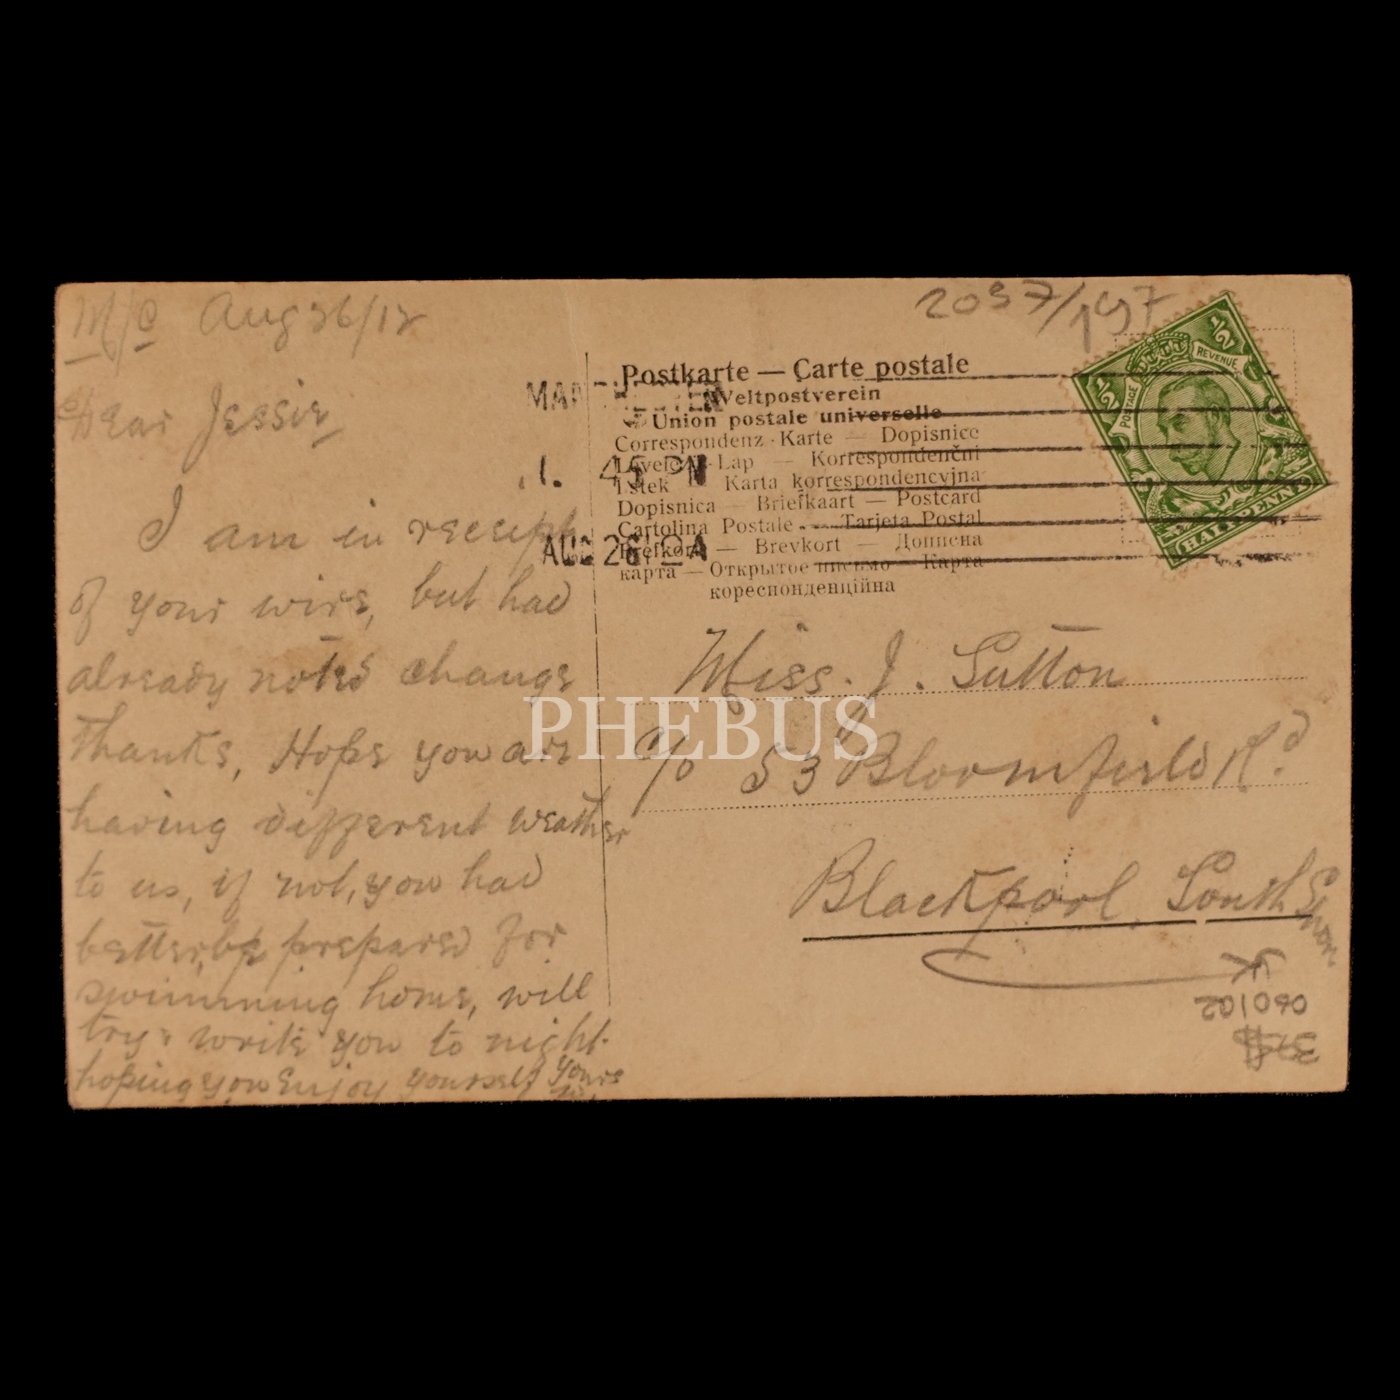 M/c Aug 26/12
Dear Jessie
I am in receipt
of your wire, but had
already noted change
thanks, Hope you are
having different weather
to us, if not, you had
better be prepared for
swimming home, will
try & write you to night.
hoping you Enjoy yourself Yours
2037/197
Postkarte — Carte postale
Weltpostverein
Union postale universelle
Correspondenz-Karte — Dopisnice
Levelező-Lap — Korrespondenční
Lístek Karta korrespondencyjna
Dopisnica — Briefkaart — Postcard
Cartolina Postale — Tarjeta Postal
Brefkort — Brevkort — Дописна
карта — Открытое письмо — Карта
кореспонденційна
MANCHESTER
1. 45 PM
AUG 26 12 A
½ ½
POSTAGE REVENUE
HALFPENNY
Miss. J. Sutton
c/o 53 Bloomfield Rd
Blackpool. South Shore
060102
PHEBUS